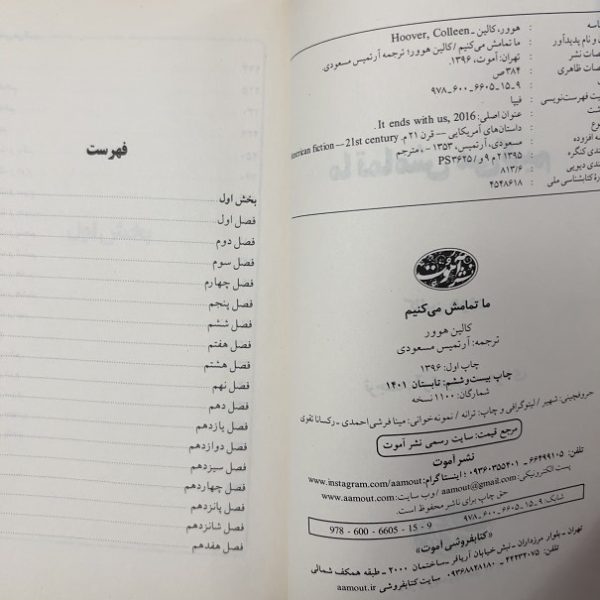 اسه : هوور، کالین ـ Hoover, Colleen
و نام پدیدآور : ما تمامش می‌کنیم / کالین هوور؛ ترجمه آرتمیس مسعودی.
صات نشر : تهران: آموت، ۱۳۹۶.
صات ظاهری : ۳۸۴ ص.
: ۹۷۸ـ۶۰۰ـ۶۶۰۵ـ۱۵ـ۹
یت فهرست‌نویسی : فیپا
شت : عنوان اصلی: It ends with us, 2016.
وع : داستان‌های آمریکایی — قرن ۲۱م. American fiction — 21st century
ه افزوده : مسعودی، آرتمیس، ۱۳۵۳ـ ، مترجم
ندی کنگره : ۱۳۹۵ ۲م ۹و / PS۳۶۲۵
ندی دیویی : ۸۱۳/۶
رهٔ کتابشناسی ملی : ۴۵۴۸۶۱۸
نشر آموت
ما تمامش می‌کنیم
کالین هوور
ترجمه: آرتمیس مسعودی
چاپ اول: ۱۳۹۶
چاپ بیست‌و‌ششم: تابستان ۱۴۰۱
شمارگان: ۱۱۰۰ نسخه
حروفچینی: شهیر / لیتوگرافی و چاپ: ترانه / نمونه‌خوانی: مینا فرشی احمدی ـ رکسانا تقوی
مرجع قیمت: سایت رسمی نشر آموت
نشر آموت
تلفن: ۶۶۴۹۹۱۰۵ ـ ۰۹۳۶۰۳۵۵۴۰۱ / اینستاگرام: www.instagram.com/aamout
پست الکترونیکی: aamout@gmail.com / وب سایت: www.aamout.com
حق چاپ برای ناشر محفوظ است.
شابک: ۹ـ۱۵ـ۶۶۰۵ـ۶۰۰ـ۹۷۸ 978 - 600 - 6605 - 15 - 9
«کتابفروشی آموت»
تهران ـ بلوار مرزداران ـ نبش خیابان آریافر ـ ساختمان ۲۰۰۰ ـ طبقه همکف شمالی
تلفن: ۴۴۲۳۲۰۷۵ ـ ۰۹۳۶۸۸۲۸۱۸۰ سایت کتابفروشی: aamout.ir
فهرست
بخش اول
فصل اول
فصل دوم
فصل سوم
فصل چهارم
فصل پنجم
فصل ششم
فصل هفتم
فصل هشتم
فصل نهم
فصل دهم
فصل یازدهم
فصل دوازدهم
فصل سیزدهم
فصل چهاردهم
فصل پانزدهم
فصل شانزدهم
فصل هفدهم